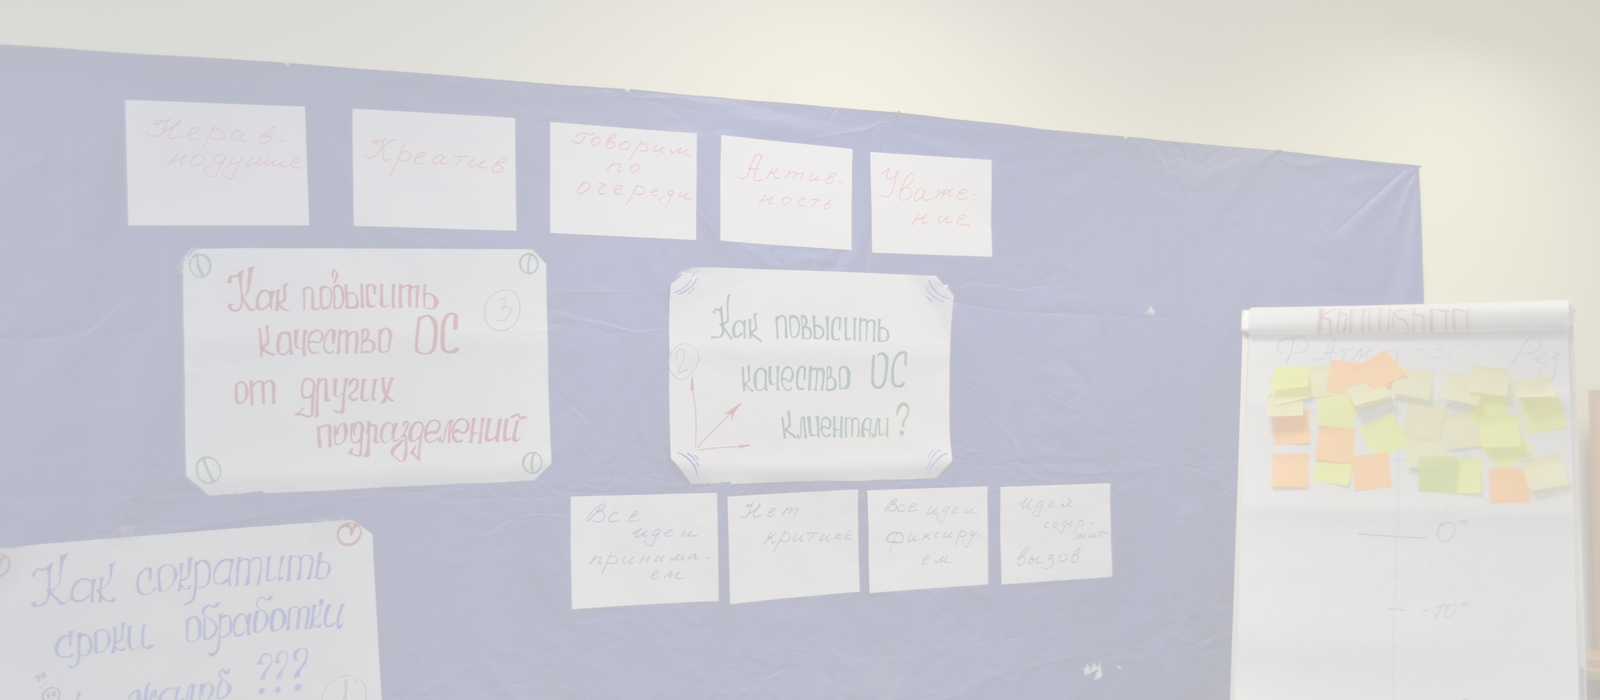 Нерав-
нодушие
Креатив
Говорим
по
очереди
Актив-
ность
Уваже-
ние
Как повысить
качество ОС
от других
подразделений
3
Как повысить
качество ОС
клиентам?
2
Все
идеи
принима-
ем
Нет
критике
Все идеи
фиксиру-
ем
идея
содер-
жит
вызов
Как сократить
сроки обработки
жалоб ???
1
Ф Атм
Рез
0°
-10°